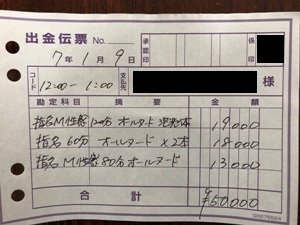 出金伝票 No.
承認印
係印
7年1月9日
コード 12:00-1:00 支払先 様
勘定科目 摘要 金額
指名M性感120分 オールヌード 19000
指名60分 オールヌード×2本 18000
指名M性感80分オールヌード 13000
合計 ¥60,000